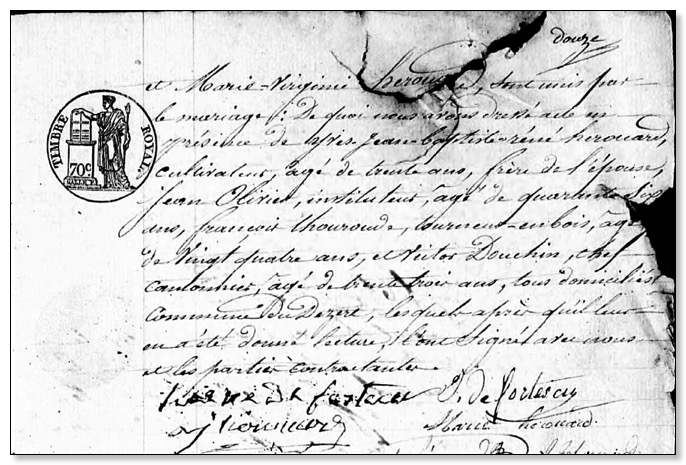 douze
TIMBRE ROYAL
70c
et Marie-Virginie herouard, sont unis par
le mariage : De quoi nous avons dressé acte en
présence de Jean-baptiste-réné herouard,
cultivateur, agé de trente ans, frère de l'épouse,
Jean Olivier, instituteur, agé de quarante six
ans, françois thouroude, tourneur-en bois, agé
de vingt quatre ans, et victor Douchin, chef
cantonnier, agé de trente trois ans, tous domiciliés
commune du Dezert, lesquels après qu'il leur
en a été donné lecture, l'ont signé avec nous
et les parties contractantes
P. de fortescu
Marie herouard.